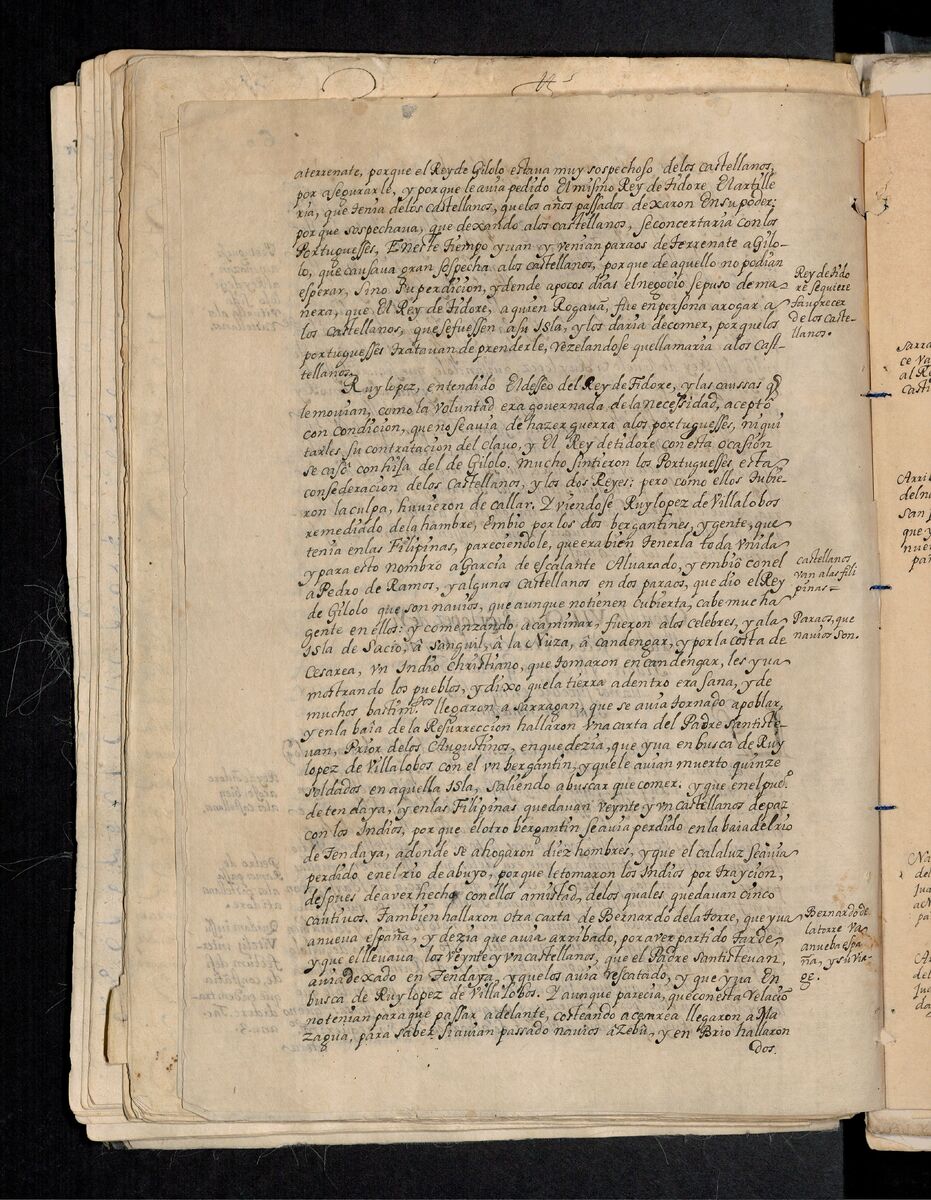 aterrenate, porque el Rey de Gilolo estava muy sospechoso delos castellanos,
por asegurarle, y porque le avia pedido El mismo Rey de Tidore El artille
ria, que tenia delos castellanos, quelos años passados dexaron En su poder;
porque sospechava, que dexando alos castellanos, se concertaria con los
Portuguesses, En este tiempo yvan y venian paraos de terrenate a Gilo-
lo, que causava gran sospecha alos castellanos, porque de aquello no podian
esperar, sino su perdicion, y dende apocos dias el negocio se puso de ma-
nera, que El Rey de Tidore, a quien Rogavã, fue en persona arogar a
los castellanos, que se fuessen a su Isla, y los daria de comer, porque los
portuguesses tratavan de prenderle, vezelandose que llamaria alos cast-
tellanos.
Ruy lopez, entendido El desseo del Rey de Tidore, y las caussas q̃
le movian, como la voluntad era governada de la necessidad, aceptò
con condicion, que no se avia de hazer guerra alos portuguesses, ni qui
tarles su contratacion del clavo, y El Rey de tidore con esta ocasion
se casò con hija del de Gilolo. Mucho sintieron los Portuguesses esta
confederacion delos Castellanos, y los dos Reyes; pero como ellos tubie-
ron la culpa, huvieron de callar. Y viendose Ruy lopez de Villalobos
remediado dela hambre, Embio por los dos bergantines, y gente, que
tenia en las Filipinas, pareciendole, que era bien tenerla toda vnida
y para esto nombro a Garcia de escalante Alvarado, y embiò con el
a Pedro de Ramos, y algunos Castellanos en dos paraos, que dio el Rey
de Gilolo que son navios, que aunque no tienen Cubierta, cabe mucha
gente en ellos: y comenzando a caminar, fueron alos celebres, y ala
Isla de Sacio, â Sanguil, â la Nuza, â candengar, y por la costa de
Cesarea, vn Indio christiano, que tomaron en candengar, les yva
mostrando los pueblos, y dixo que la tierra adentro era sana, y de
muchos bastim.tos llegaron a Sarragan, que se avia tornado apoblar,
y en la baîa de la Resurreccion hallaron vna carta del Padre Santiste-
van, Prior delos Augustinos, en que dezia, que yva en busca de Ruy
lopez de Villalobos con el vn bergantin, y que le avian muerto quinze
soldados en aquella Isla, saliendo abuscar que comer. y que en el pue.o
de tendaya, y en las Filipinas quedavan Veynte y vn castellanos de paz
con los Indios, porque el otro bergantin se avia perdido en la baia del rio
de Tendaya, adonde se ahogaron diez hombres, y que el calaluz se avia
perdido en el rio de abuyo, porque le tomaron los Indios por trayciõn,
despues de aver hecho con ellos amistad, delos quales quedavan cinco
cautivos. Tambien hallaron otra carta de Bernardo dela torre, que yva
anueva españa, y dezia que avia arribado, por aver partido tarde
y que el llevava los veynte y vn castellanos, que el Padre Santistevan,
avia dexado en Tendaya, y quelos avia rescatado, y que yva En
busca de Ruy lopez de Villalobos. Y aunque parecia, que con esta Relaciõ
no tenian para que passar adelante, costeando a cesarea llegaron a Ma
zagua, para saber si avian passado navios âzebû, y en Brio hallaron
dos.
Rey de Tido
re se quiere
favorecer
de los caste-
llanos.
castellanos
van alas fili
pinas-
Paraos, que
navios son.
Bernardo de
la torre va
anueba espa
ña, y su via-
ge.